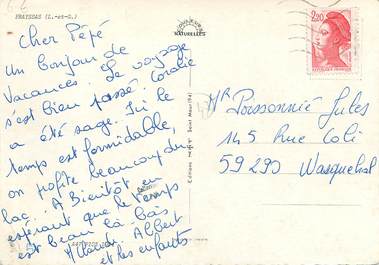 FRAYSSAS (L.-et-G.)
COULEURS
NATURELLES
2,20
Cher Pépé
un bonjour de
vacances. Le voyage
s'est bien passé. Coralie
a été sage. Ici le
temps est formidable,
on profite beaucoup du
lac. A Bientôt en
espérant que le temps
est beau là-bas
Albert
et les enfants
Mr Poissonnié Jules
145 Rue Coli
59290 Wasquehal